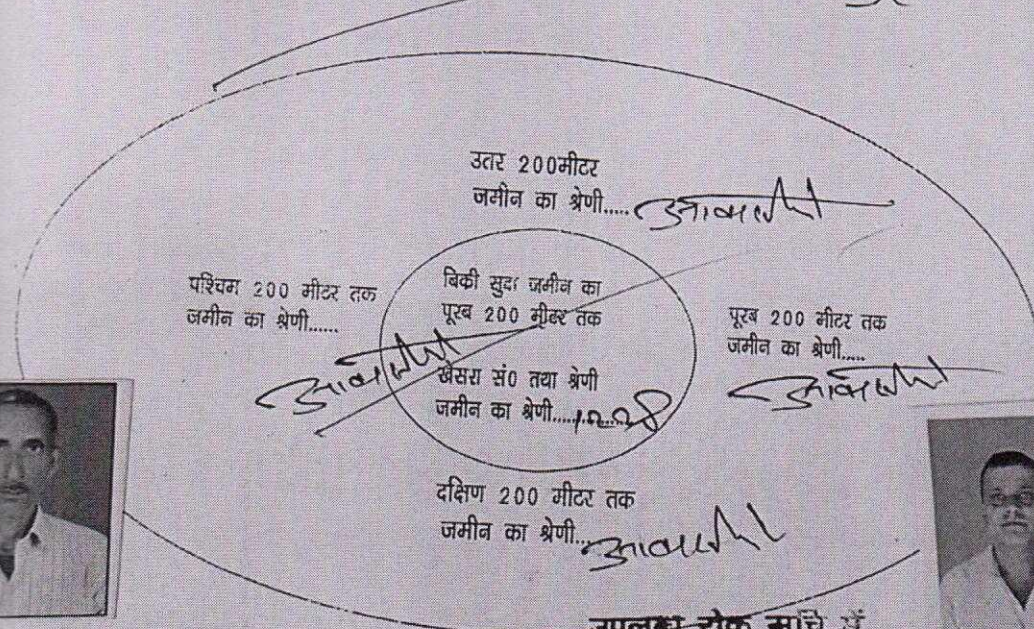 उतर 200मीटर
जमीन का श्रेणी..... आवासीय
पश्चिम 200 मीटर तक
जमीन का श्रेणी......
आवासीय
बिकी सुदा जमीन का
पूरब 200 मीटर तक
खेसरा सं0 तथा श्रेणी
जमीन का श्रेणी......
पूरब 200 मीटर तक
जमीन का श्रेणी.....
आवासीय
दक्षिण 200 मीटर तक
जमीन का श्रेणी... आवासीय